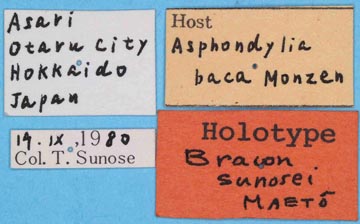 Asari
Otaru City
Hokkaido
Japan
Host
Asphondylia
baca Monzen
19. ix ,1980
Col. T. Sunose
Holotype
Bracon
sunosei
MAETÔ